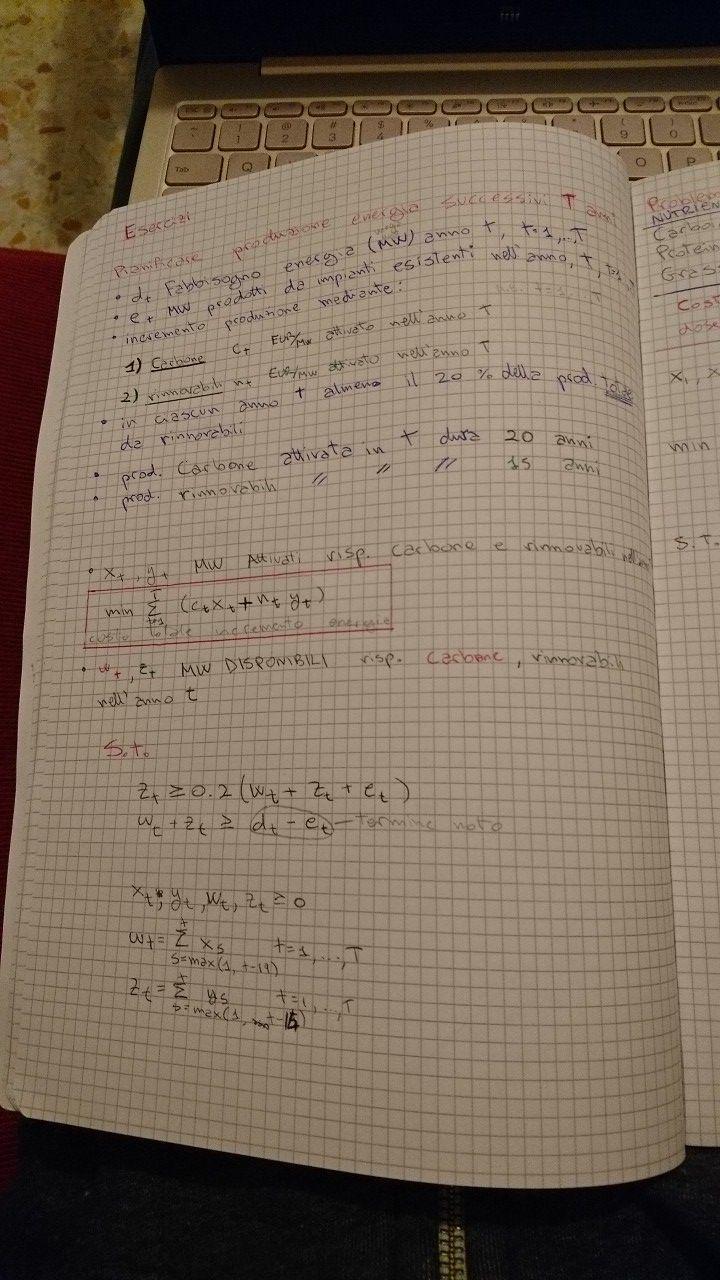 Esercizi
Pianificare produzione energia successivi T anni
• dt Fabbisogno energia (MW) anno t, t=1,..,T
• et MW prodotti da impianti esistenti nell'anno, t, t=1,
• incremento produzione mediante:
1) Carbone ct EUR/MW attivato nell'anno T
2) rinnovabili nt EUR/MW attivato nell'anno T
• in ciascun anno t almeno il 20 % della prod. totale
da rinnovabili
• prod. Carbone attivata in t dura 20 anni
• prod. rinnovabili // // // 15 anni
• xt, yt MW Attivati risp. carbone e rinnovabili
min Σ t=1 T (ctxt + nt yt)
costo totale incremento energie
• wt, zt MW DISPONIBILI risp. Carbone, rinnovabili
nell'anno t
S.t.
zt ≥ 0.2 (wt + zt + et)
wt + zt ≥ dt - et — termine noto
xt, yt, wt, zt ≥ 0
wt = Σ t xs t=1,...,T
s=max(1, t-19)
zt = Σ t ys t=1,..,T
s=max(1, t-15)
Problem
NUTRIEN
Carboi
Protein
Grass
Cost
dose
x1, x
min
S.T.
Tab
Q
O
P
! 1
@ 2
# 3
$ 4
%
( 9
) 0